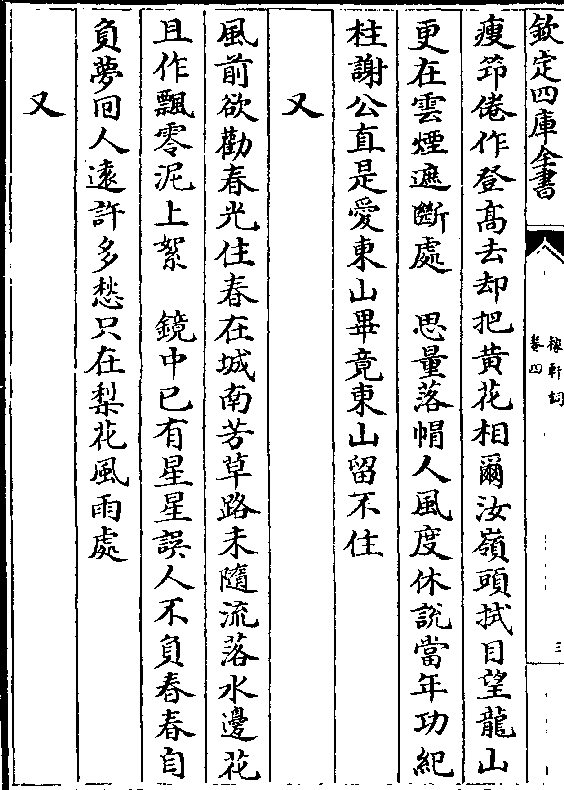 欽定四庫全書
稼軒詞
卷四
三
瘦笻倦作登髙去却把黄花相爾汝嶺頭拭目望龍山
更在雲煙遮斷處　思量落帽人風度休說當年功紀
柱謝公直是愛東山畢竟東山留不住
又
風前欲勸春光住春在城南芳草路未隨流落水邊花
且作飄零泥上絮　鏡中已有星星誤人不負春春自
負夢回人遠許多愁只在梨花風雨處
又